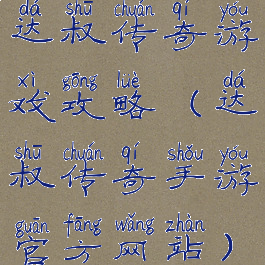 dá shū chuán qí yóu
达叔传奇游
xì gōng lüè dá
戏攻略（达
shū chuán qí shǒu yóu
叔传奇手游
guān fāng wǎng zhàn
官方网站）